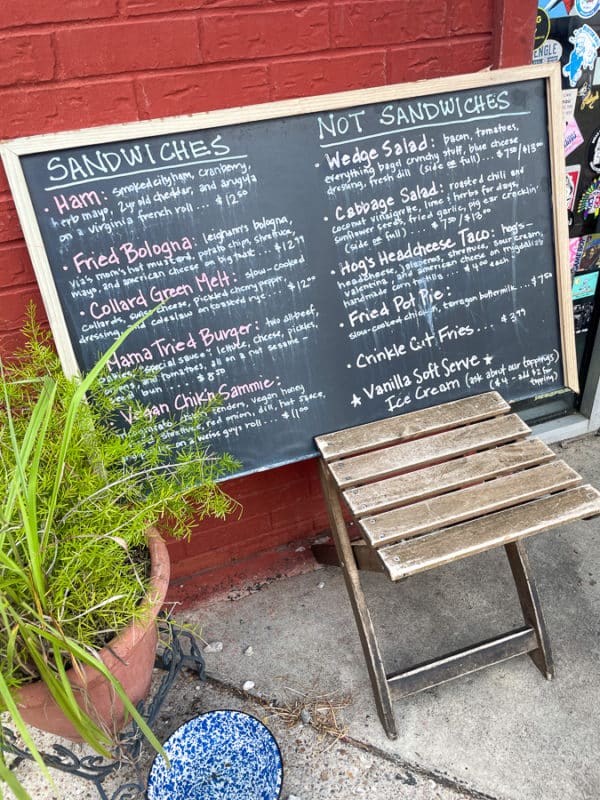 SANDWICHES
• Ham: smoked city ham, cranberry,
herb mayo, 2yr old cheddar, and arugula
on a virginia french roll... $12.50
• Fried Bologna: leighann's bologna,
via's mom's hot mustard, potato chips, shrettuce,
mayo, and american cheese on big fhat... $12.99
• Collard Green Melt: slow-cooked
collards, swiss cheese, pickled cherry pepper
dressing, and coleslaw on toasted rye... $12.00
Mama Tried Burger: two all-beef
"special sauce" lettuce, cheese, pickles,
and tomatoes, all on a not sesame-
bun... $8.50
Vegan Chikn Sammie:
tenders, vegan honey
shrettuce, red onion, dill, hot sauce,
on a weiss guys roll... $11.00
NOT SANDWICHES
• Wedge Salad: bacon, tomatoes,
everything bagel crunchy stuff, blue cheese
dressing, fresh dill (side or full)... $7.50/$13.00
• Cabbage Salad: roasted chili and
coconut vinaigrette, lime, herbs for days,
sunflower seeds, fried garlic, pig ear cracklin'
(side or full)... $7.50/$13.00
• Hog's Headcheese Taco: hog's-
headcheese, jalapeños, shrettuce, sour cream,
valentina, and american cheese on
handmade corn $4.00 each
• Fried Pot Pie:
slow-cooked chicken, tarragon buttermilk... $7.50
• Crinkle Cut Fries... $3.99
★ Vanilla Soft Serve ★
Ice Cream (ask about our toppings)
($4 - add $2 for topping)